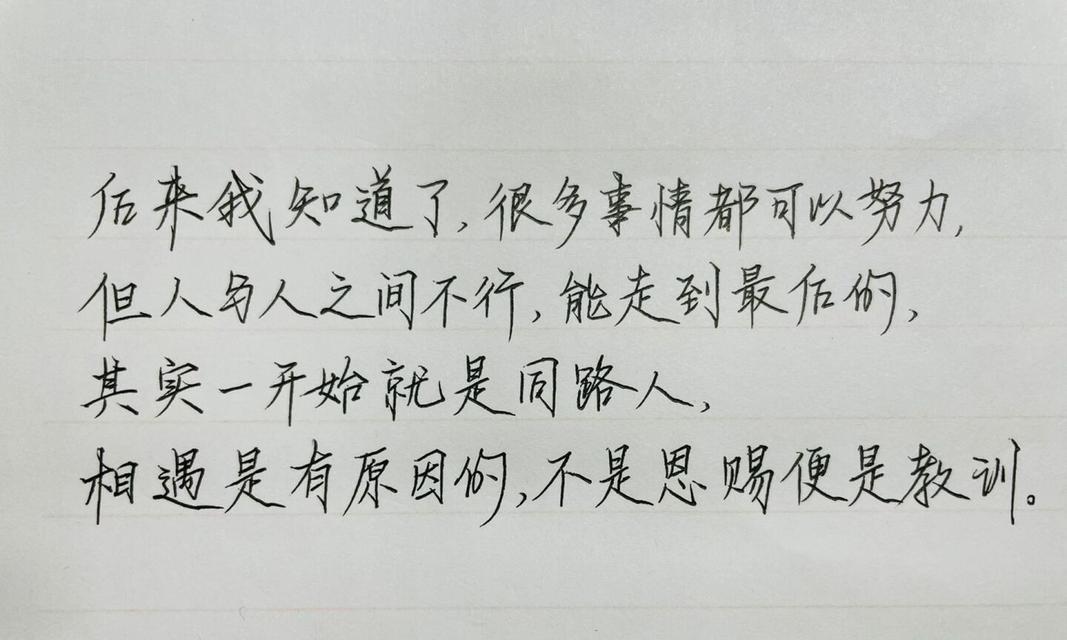 后来我知道了,很多事情都可以努力,
但人与人之间不行,能走到最后的,
其实一开始就是同路人,
相遇是有原因的,不是恩赐便是教训。